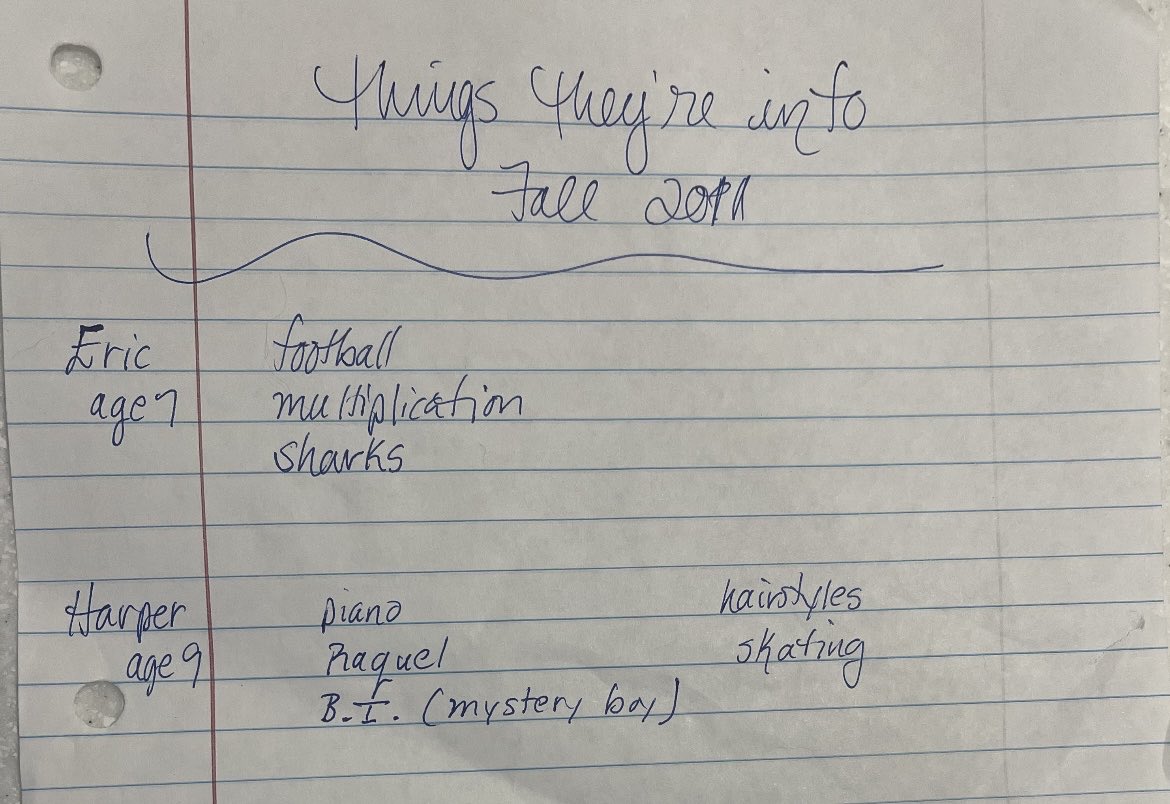 Things they're into
Fall 2011
Eric football
age 7 multiplication
sharks
Harper piano hairstyles
age 9 Raquel skating
B.I. (mystery boy)